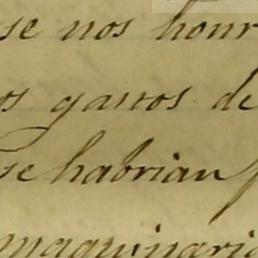 se nos honr
os gastos de
se habrian p
maquinaria